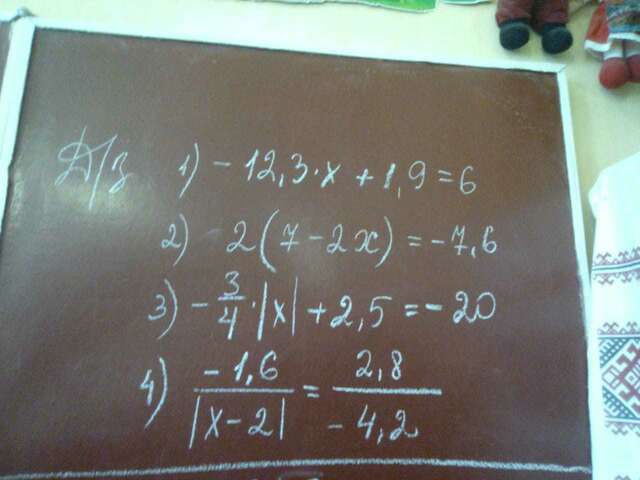 Д/з 1) - 12,3·x + 1,9 = 6
2) 2(7 - 2x) = -7,6
3) - 3/4 · |x| + 2,5 = - 20
4) -1,6/|x-2| = 2,8/-4,2